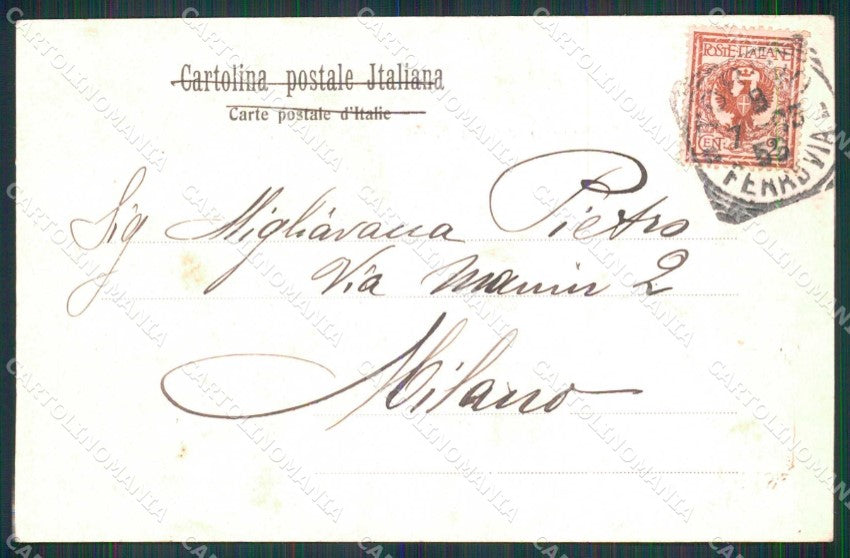 Cartolina postale Italiana
Carte postale d'Italie
POSTE ITALIANE
CEN. 2
9
7 03
FERROVIA
Sig Migliavacca Pietro
Via Manin 2
Milano
CARTOLINOMANIA